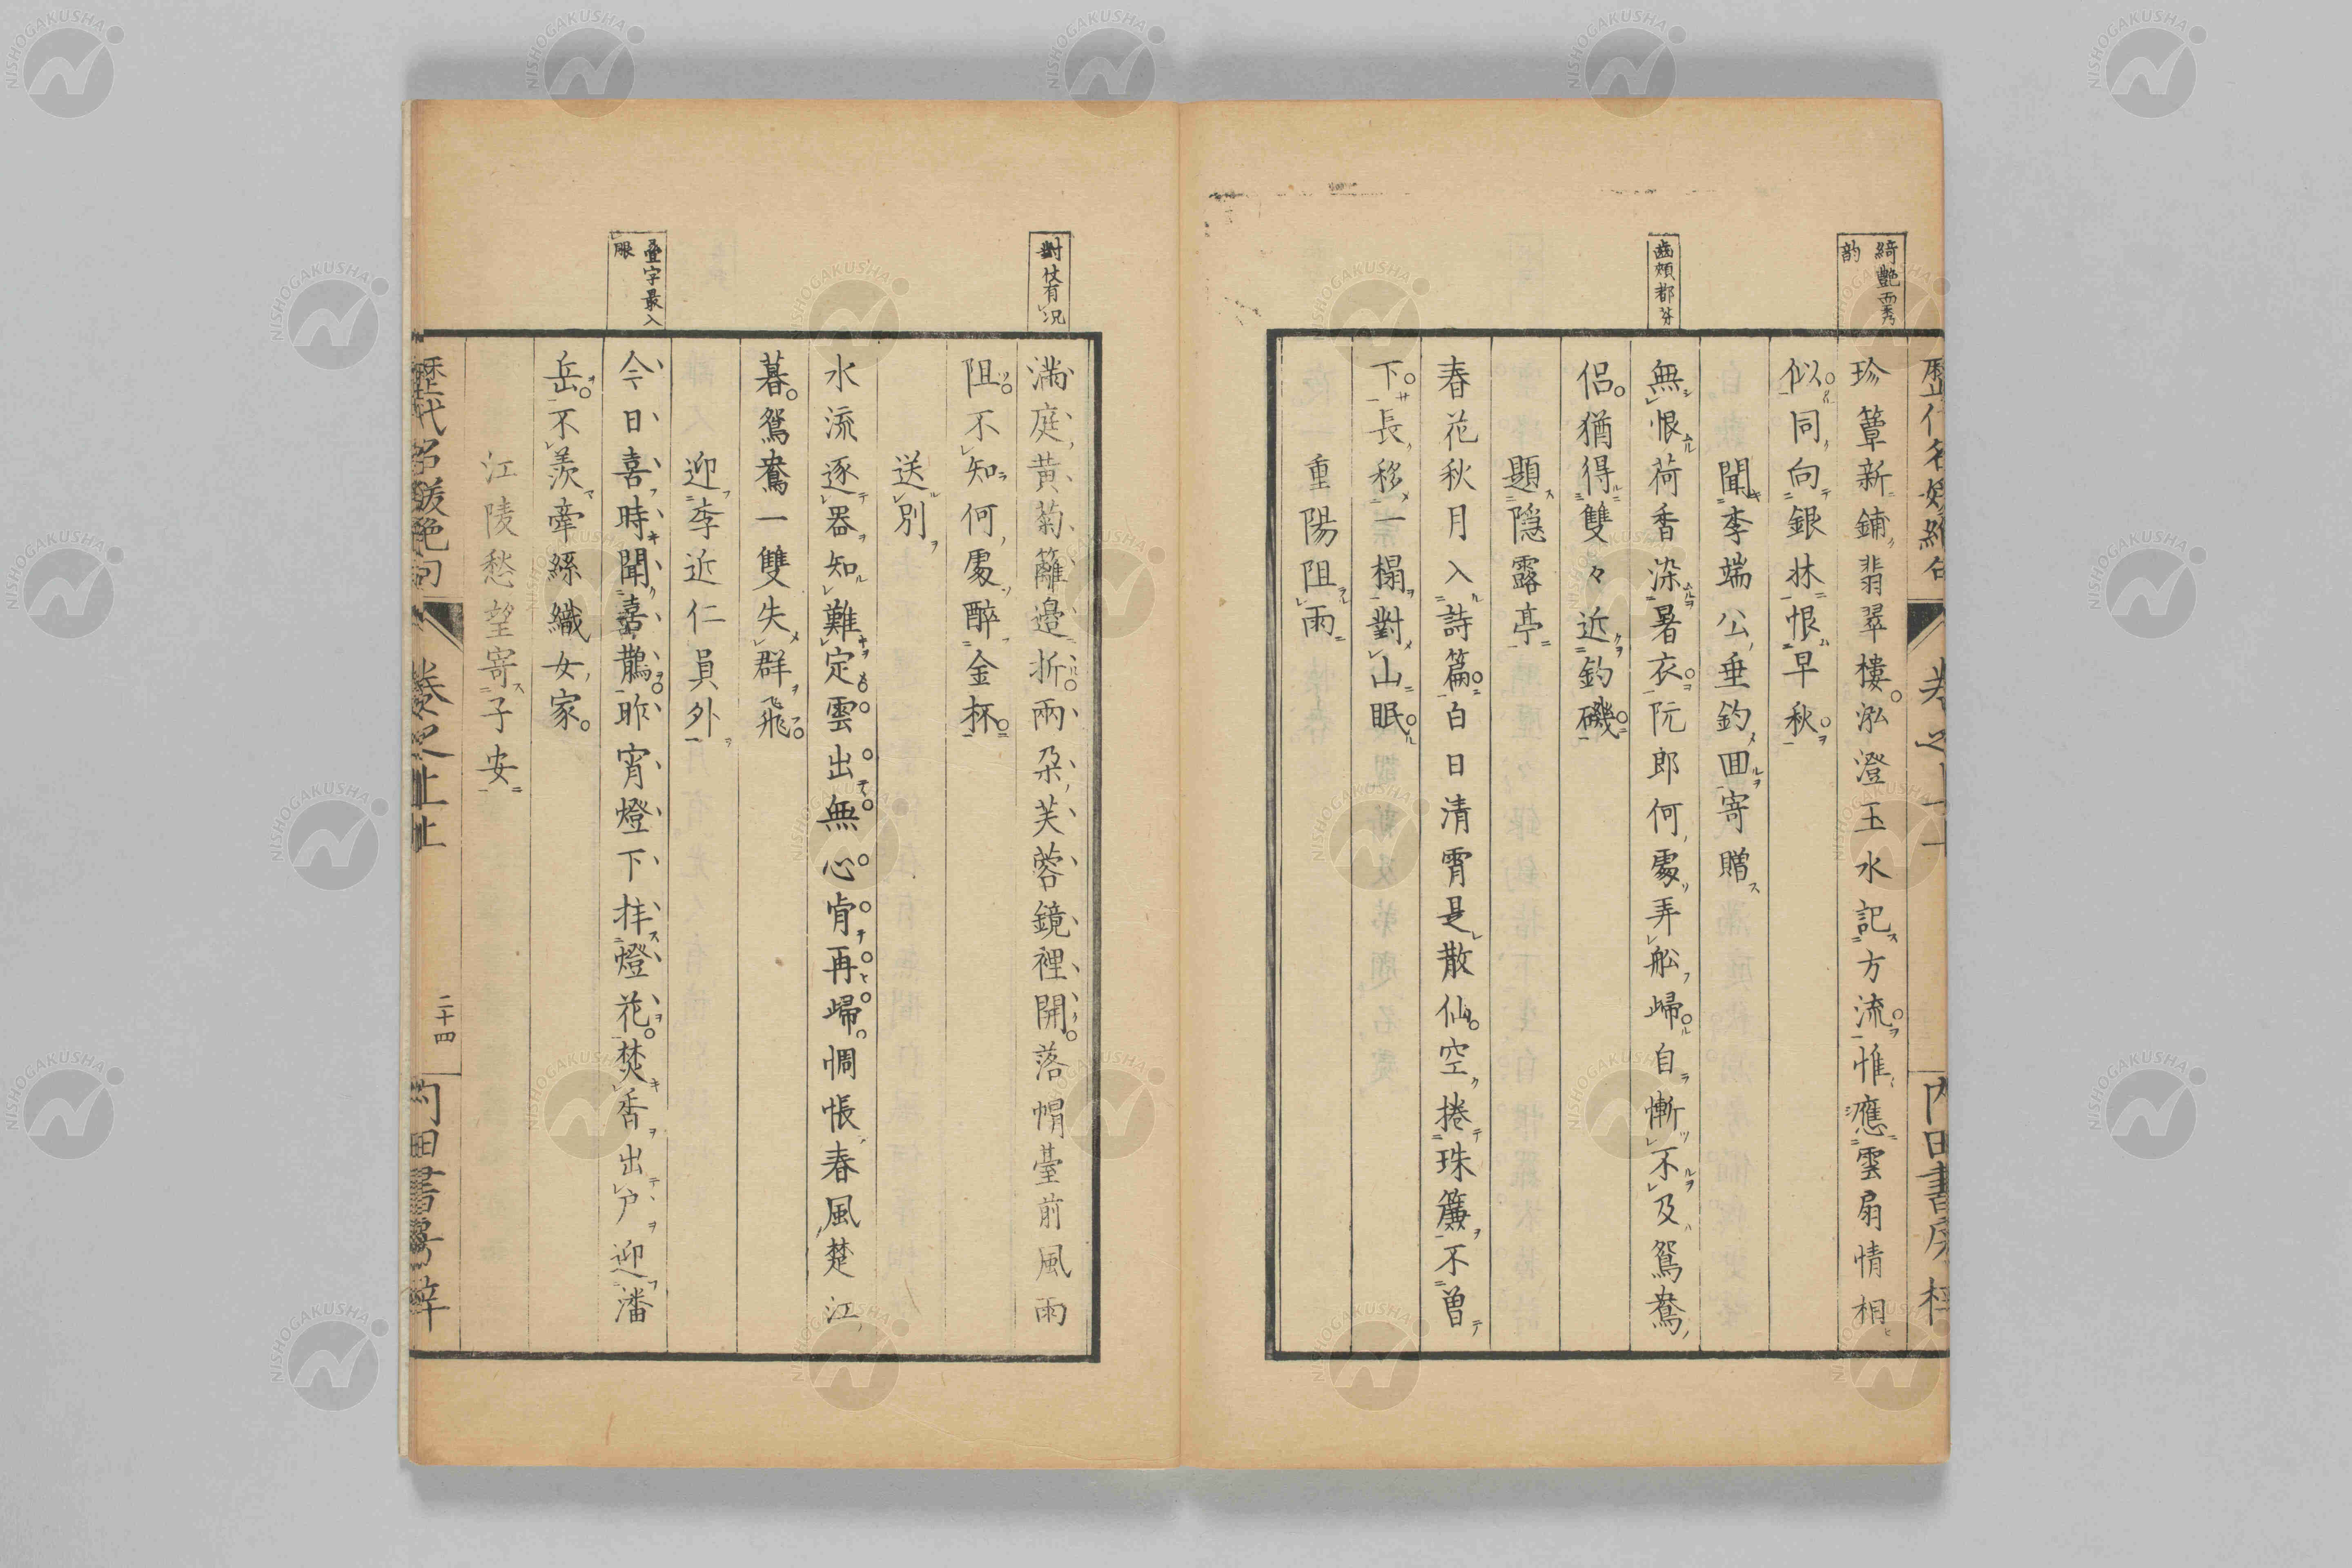 綺艷霊秀
韵
珍簟新鋪翡翠樓泓澄玉水記方流惟應雲扇情相
似同向銀牀恨早秋
聞李端公垂釣囬寄贈
齒頰都芬
無恨荷香染暑衣阮郎何處弄舩歸自慚不及鴛鴦
侶猶得雙々近釣磯
題隠霧亭
春花秋月入詩篇白日清霄是散仙空捲珠簾不曽
下長移一榻對山眠
重陽阻雨
對仗有況
滿庭黄菊籬邉折兩朶芙蓉鏡裡開落帽臺前風雨
阻不知何處醉金杯
送別
水流逐器知難定雲出無心肯再歸惆悵春風楚江
暮鴛鴦一雙失群飛
迎李近仁員外
疊字最入
眼
今日喜時聞喜鵲昨宵燈下拝燈花焚香出戸迎潘
岳不羨牽絲織女家
江陵愁望寄子安
歷代名媛絶句
卷之上
二十四
内田書房梓